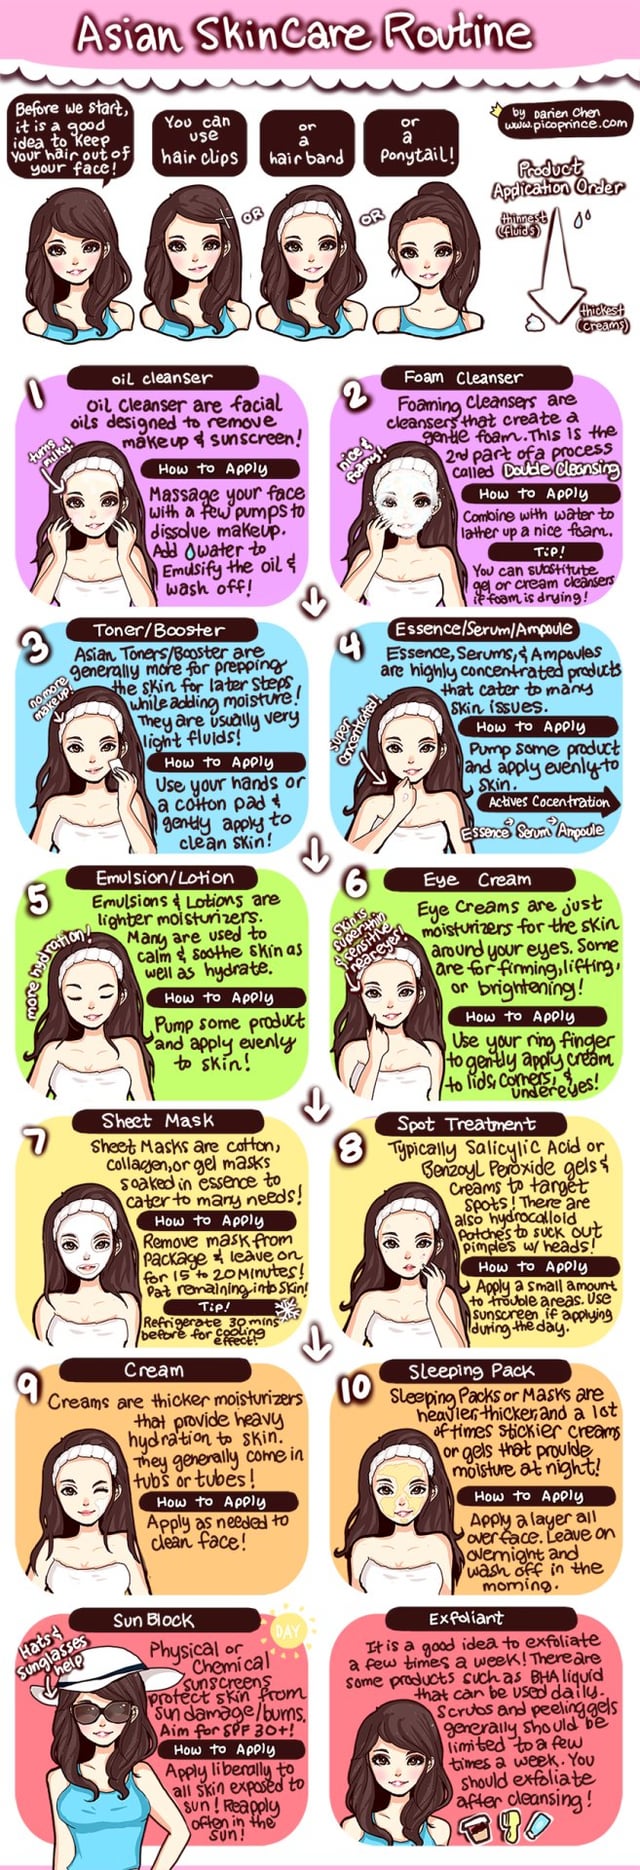 Asian SkinCare Routine
Before we start,
it is a good
idea to keep
your hair out of
your face!
You can
use
hair clips
or
a
hair band
or
a
Ponytail!
by Darien Chen
www.picoprince.com
OR
OR
Product
Application Order
thinnest
(fluids)
thickest
(creams)
1
oil cleanser
Oil Cleanser are facial
oils designed to remove
makeup & sunscreen!
turns
milky!
How to Apply
Massage your face
with a few pumps to
dissolve makeup.
Add water to
Emulsify the oil &
wash off!
2
Foam Cleanser
Foaming Cleansers are
cleansers that create a
gentle foam. This is the
2nd part of a process
called Double Cleansing
nice &
foamy!
How to Apply
Combine with water to
lather up a nice foam.
Tip!
You can substitute
gel or cream cleansers
if foam is drying!
3
Toner/Booster
Asian Toners/Booster are
generally more for prepping
the skin for later steps
while adding moisture!
They are usually very
light fluids!
no more
makeup!
How to Apply
Use your hands or
a cotton pad &
gently apply to
clean skin!
4
Essence/Serum/Ampoule
Essence, Serums, & Ampoules
are highly concentrated products
that cater to many
skin issues.
super
concentrated!
How to Apply
Pump some product
and apply evenly to
skin.
Actives Cocentration
Essence Serum Ampoule
5
Emulsion/Lotion
Emulsions & Lotions are
lighter moisturizers.
Many are used to
calm & soothe skin as
well as hydrate.
more hydration!
How to Apply
Pump some product
and apply evenly
to skin!
6
Eye Cream
Eye Creams are just
moisturizers for the skin
around your eyes. Some
are for firming, lifting,
or brightening!
Skin is
super thin
& sensitive
near eyes!
How to Apply
Use your ring finger
to gently apply cream
to lids, corners, &
undereyes!
7
Sheet Mask
Sheet Masks are cotton,
collagen, or gel masks
soaked in essence to
cater to many needs!
How to Apply
Remove mask from
package & leave on
for 15 to 20 Minutes!
Pat remaining into Skin!
Tip!
Refrigerate 30 mins
before for cooling
effect!
8
Spot Treatment
Typically Salicylic Acid or
Benzoyl Peroxide gels &
Creams to target
spots! There are
also hydrocolloid
Patches to suck out
pimples w/ heads!
How to Apply
Apply a small amount
to trouble areas. Use
sunscreen if applying
during the day.
9
Cream
Creams are thicker moisturizers
that provide heavy
hydration to skin.
They generally come in
tubs or tubes!
How to Apply
Apply as needed to
clean face!
10
Sleeping Pack
Sleeping Packs or Masks are
heavier, thicker, and a lot
of times stickier creams
or gels that provide
moisture at night!
How to Apply
Apply a layer all
over face. Leave on
overnight and
wash off in the
morning.
Sun Block
DAY
Hats &
sunglasses
help
Physical or
Chemical
sunscreens
protect skin from
sun damage/burns.
Aim for SPF 30+!
How to Apply
Apply liberally to
all skin exposed to
sun! Reapply
often in the
sun!
Exfoliant
It is a good idea to exfoliate
a few times a week! There are
some products such as BHA liquid
that can be used daily.
Scrubs and peeling gels
generally should be
limited to a few
times a week. You
should exfoliate
after cleansing!